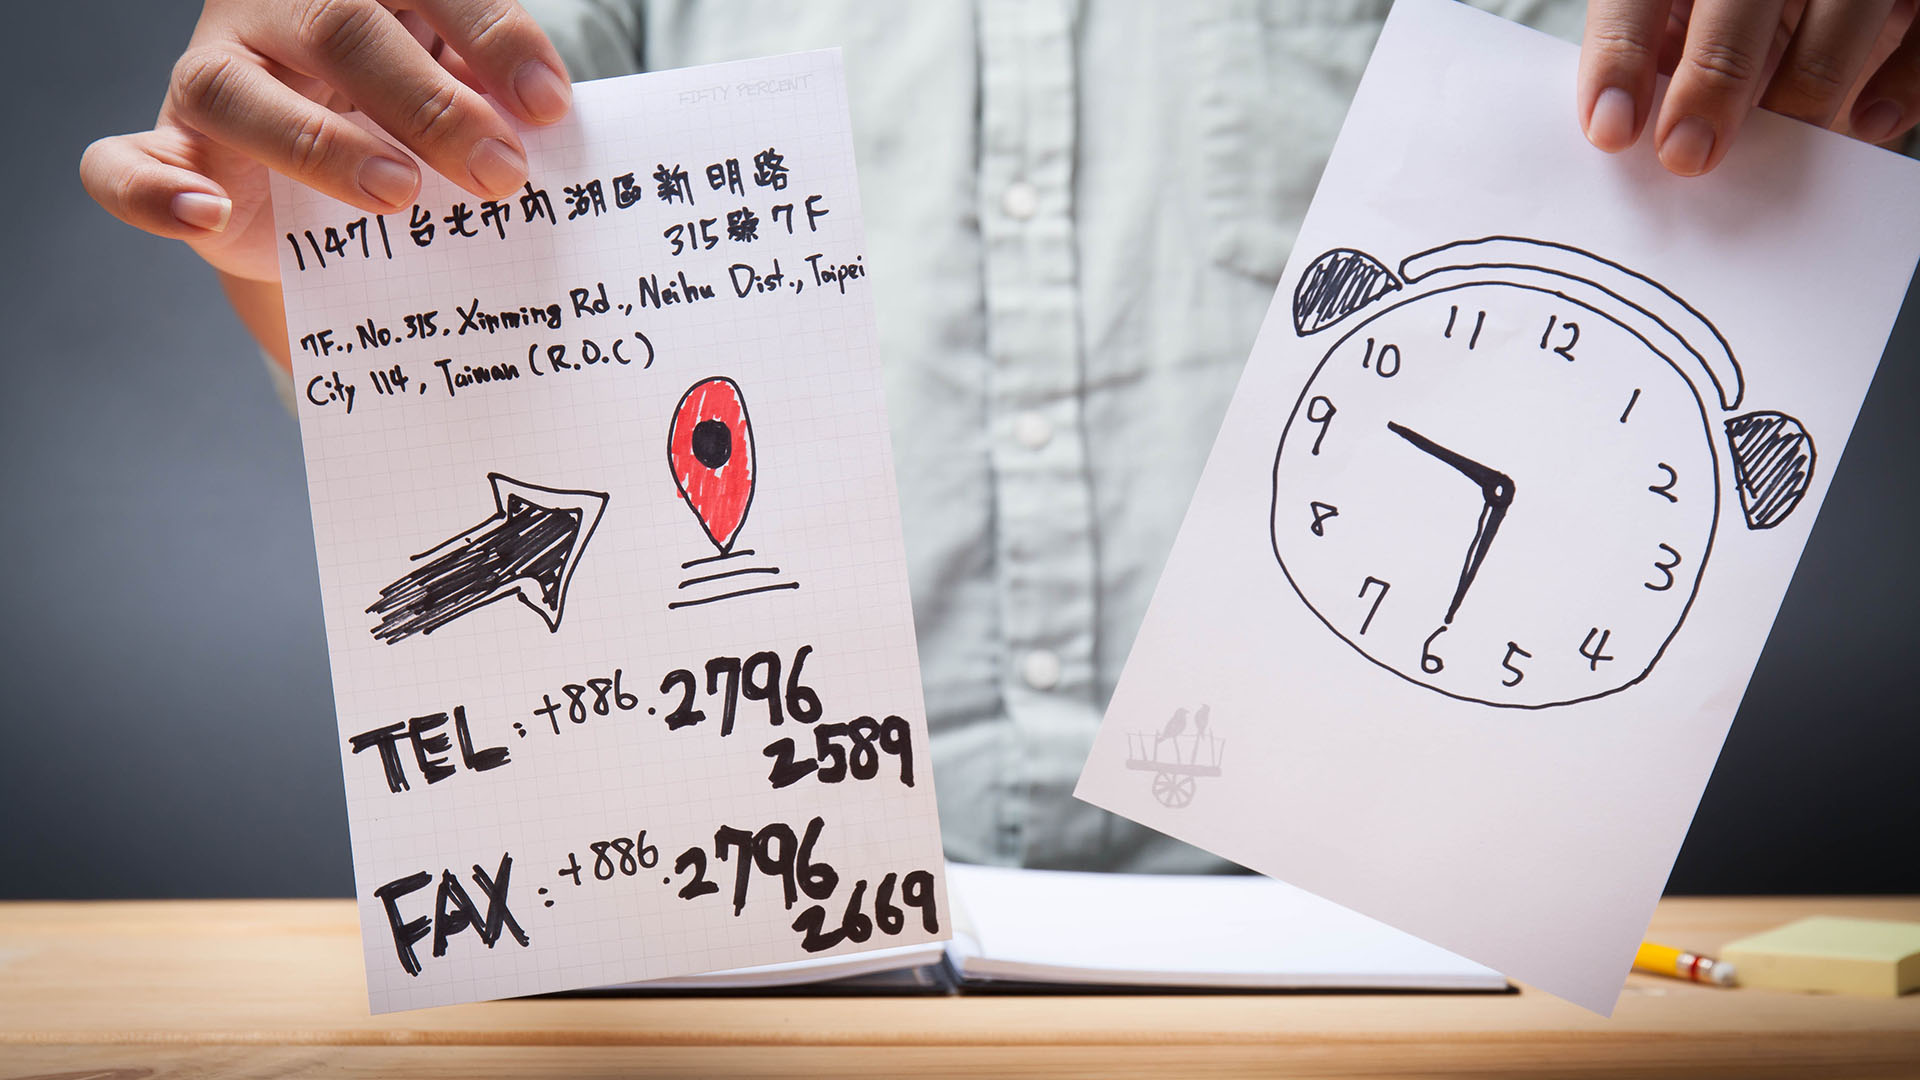 FIFTY PERCENT
11471台北市內湖區新明路
315號7F
7F., No.315, Xinming Rd., Neihu Dist., Taipei
City 114, Taiwan (R.O.C)
TEL: +886.2796
2589
FAX: +886.2796
2669
11 12
10
1
9
2
8
3
7
6 5 4